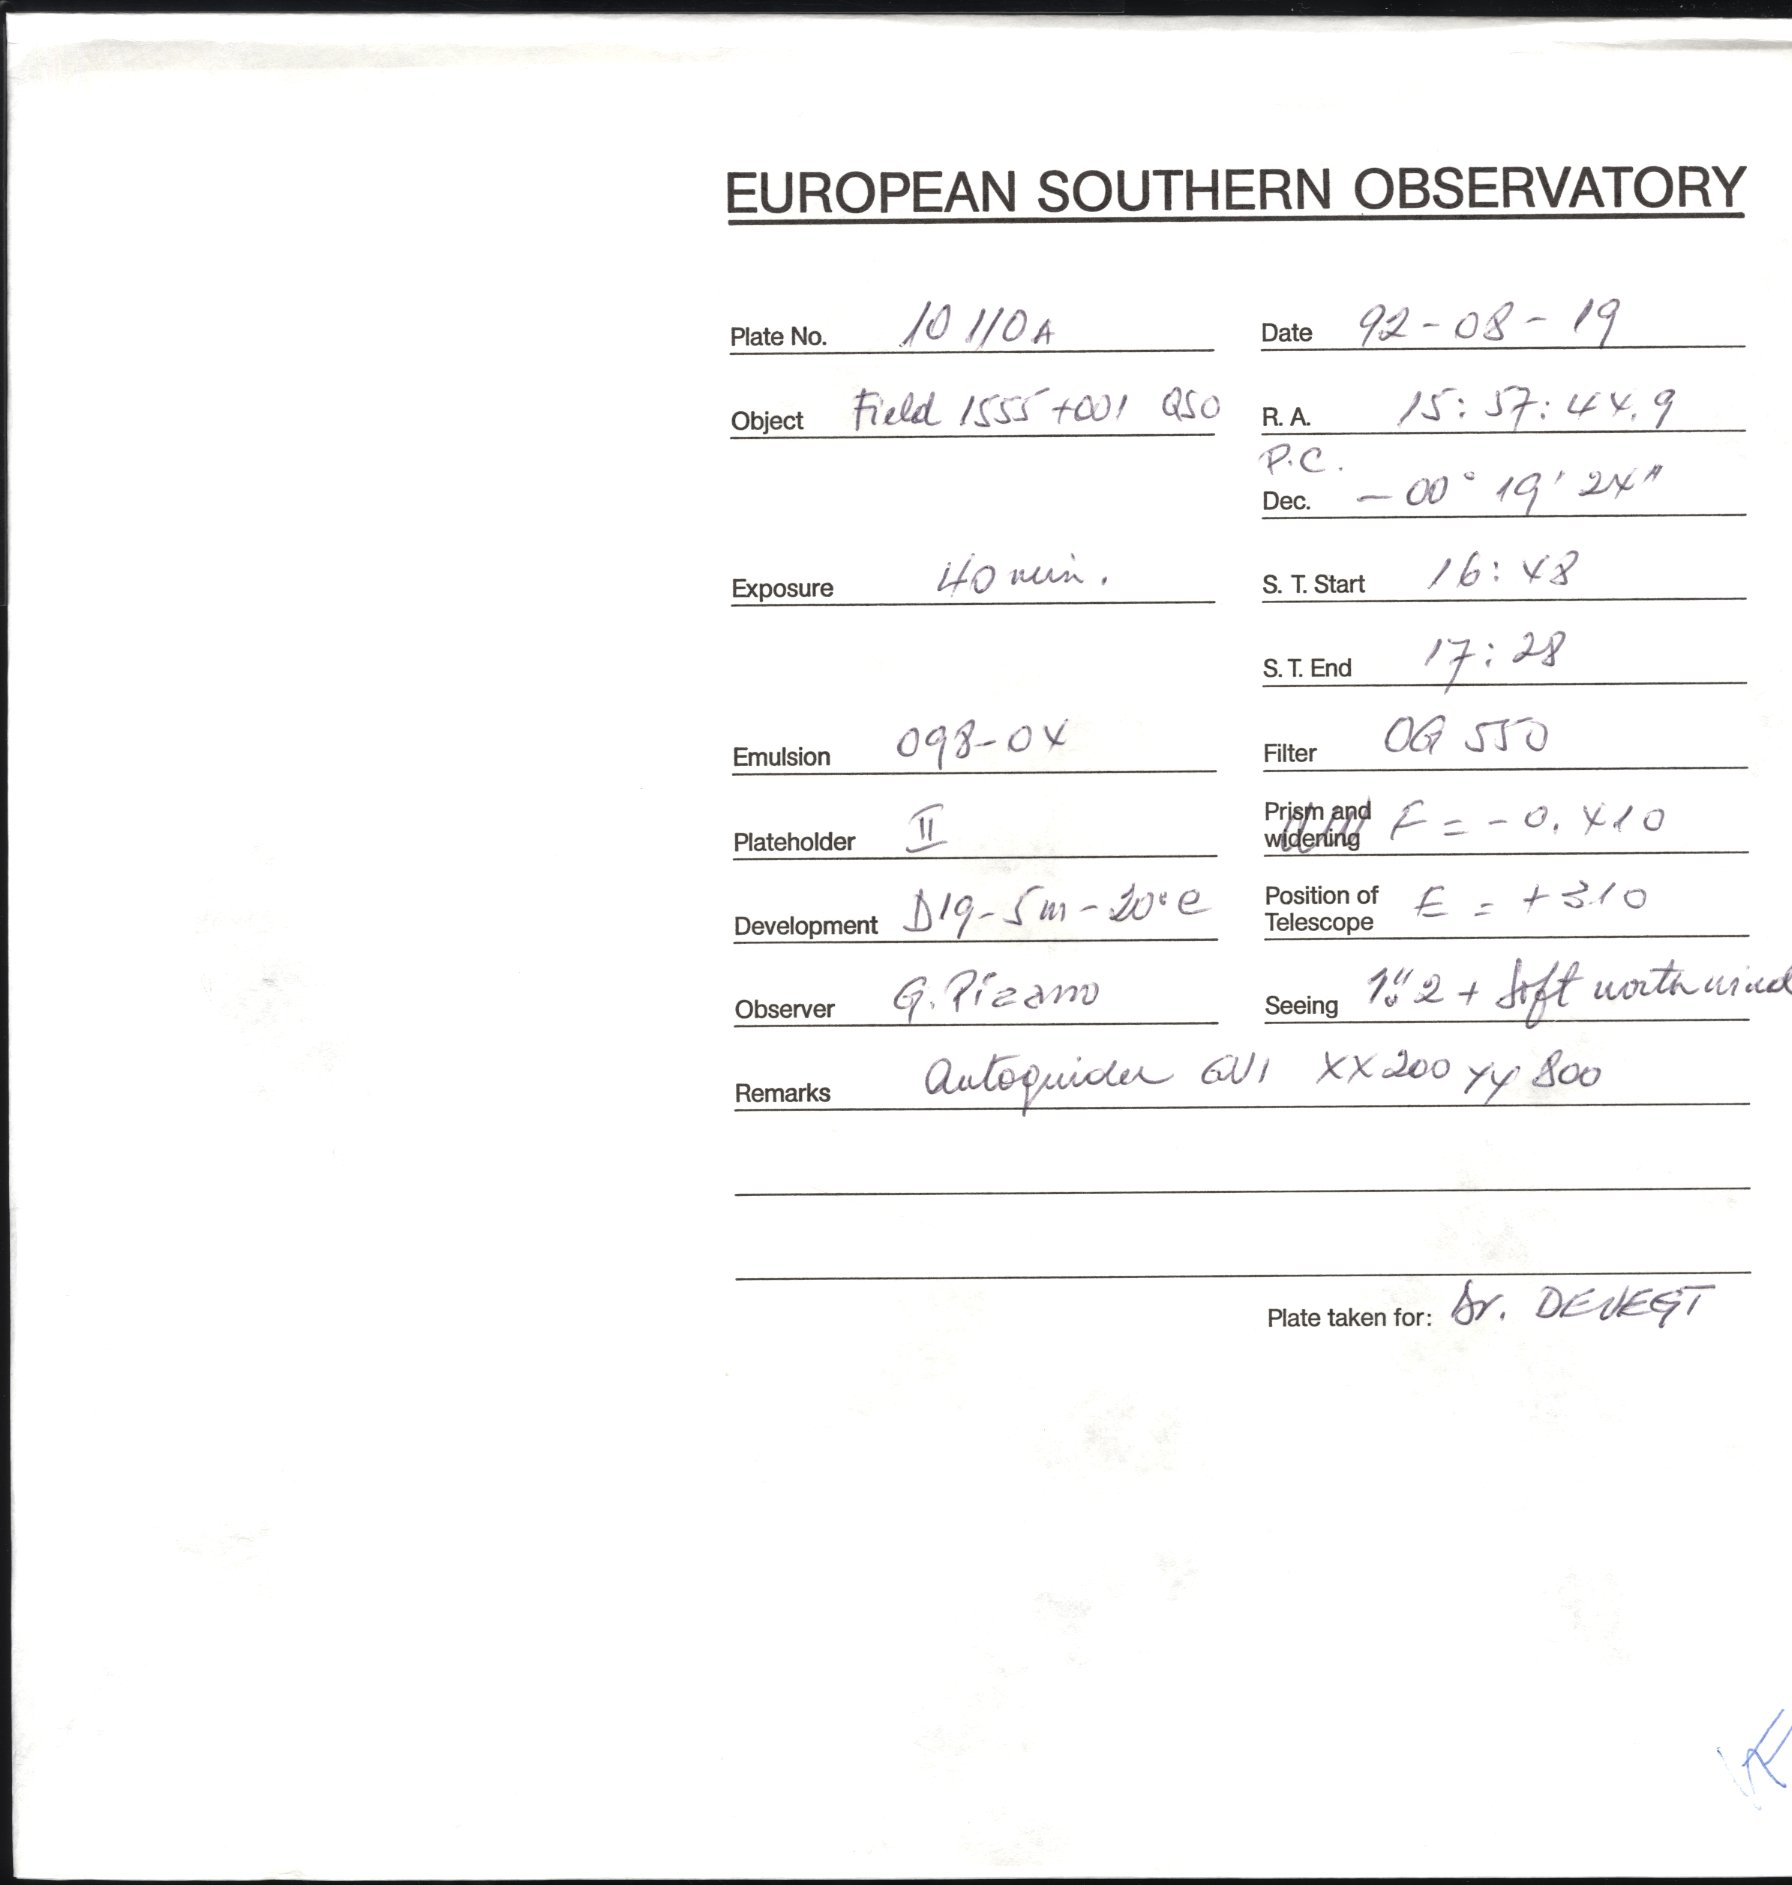 EUROPEAN SOUTHERN OBSERVATORY
Plate No. 10110A Date 92-08-19
Object Field 1555+001 QSO R. A. 15:57:44.9
P.C.
Dec. -00° 19' 24"
Exposure 40 min. S. T. Start 16:48
S. T. End 17:28
Emulsion 098-04 Filter OG 550
Plateholder II Prism and widening F = -0.410
Development D19-5m-20°C Position of Telescope E = +310
Observer G. Pizarro Seeing 1"2 + Soft north wind
Remarks Autoguider GV1 XX200 YY 800
Plate taken for: Dr. DEVEGT